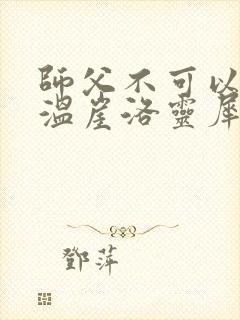 師父不可以
溫崖洛靈犀
鄧萍